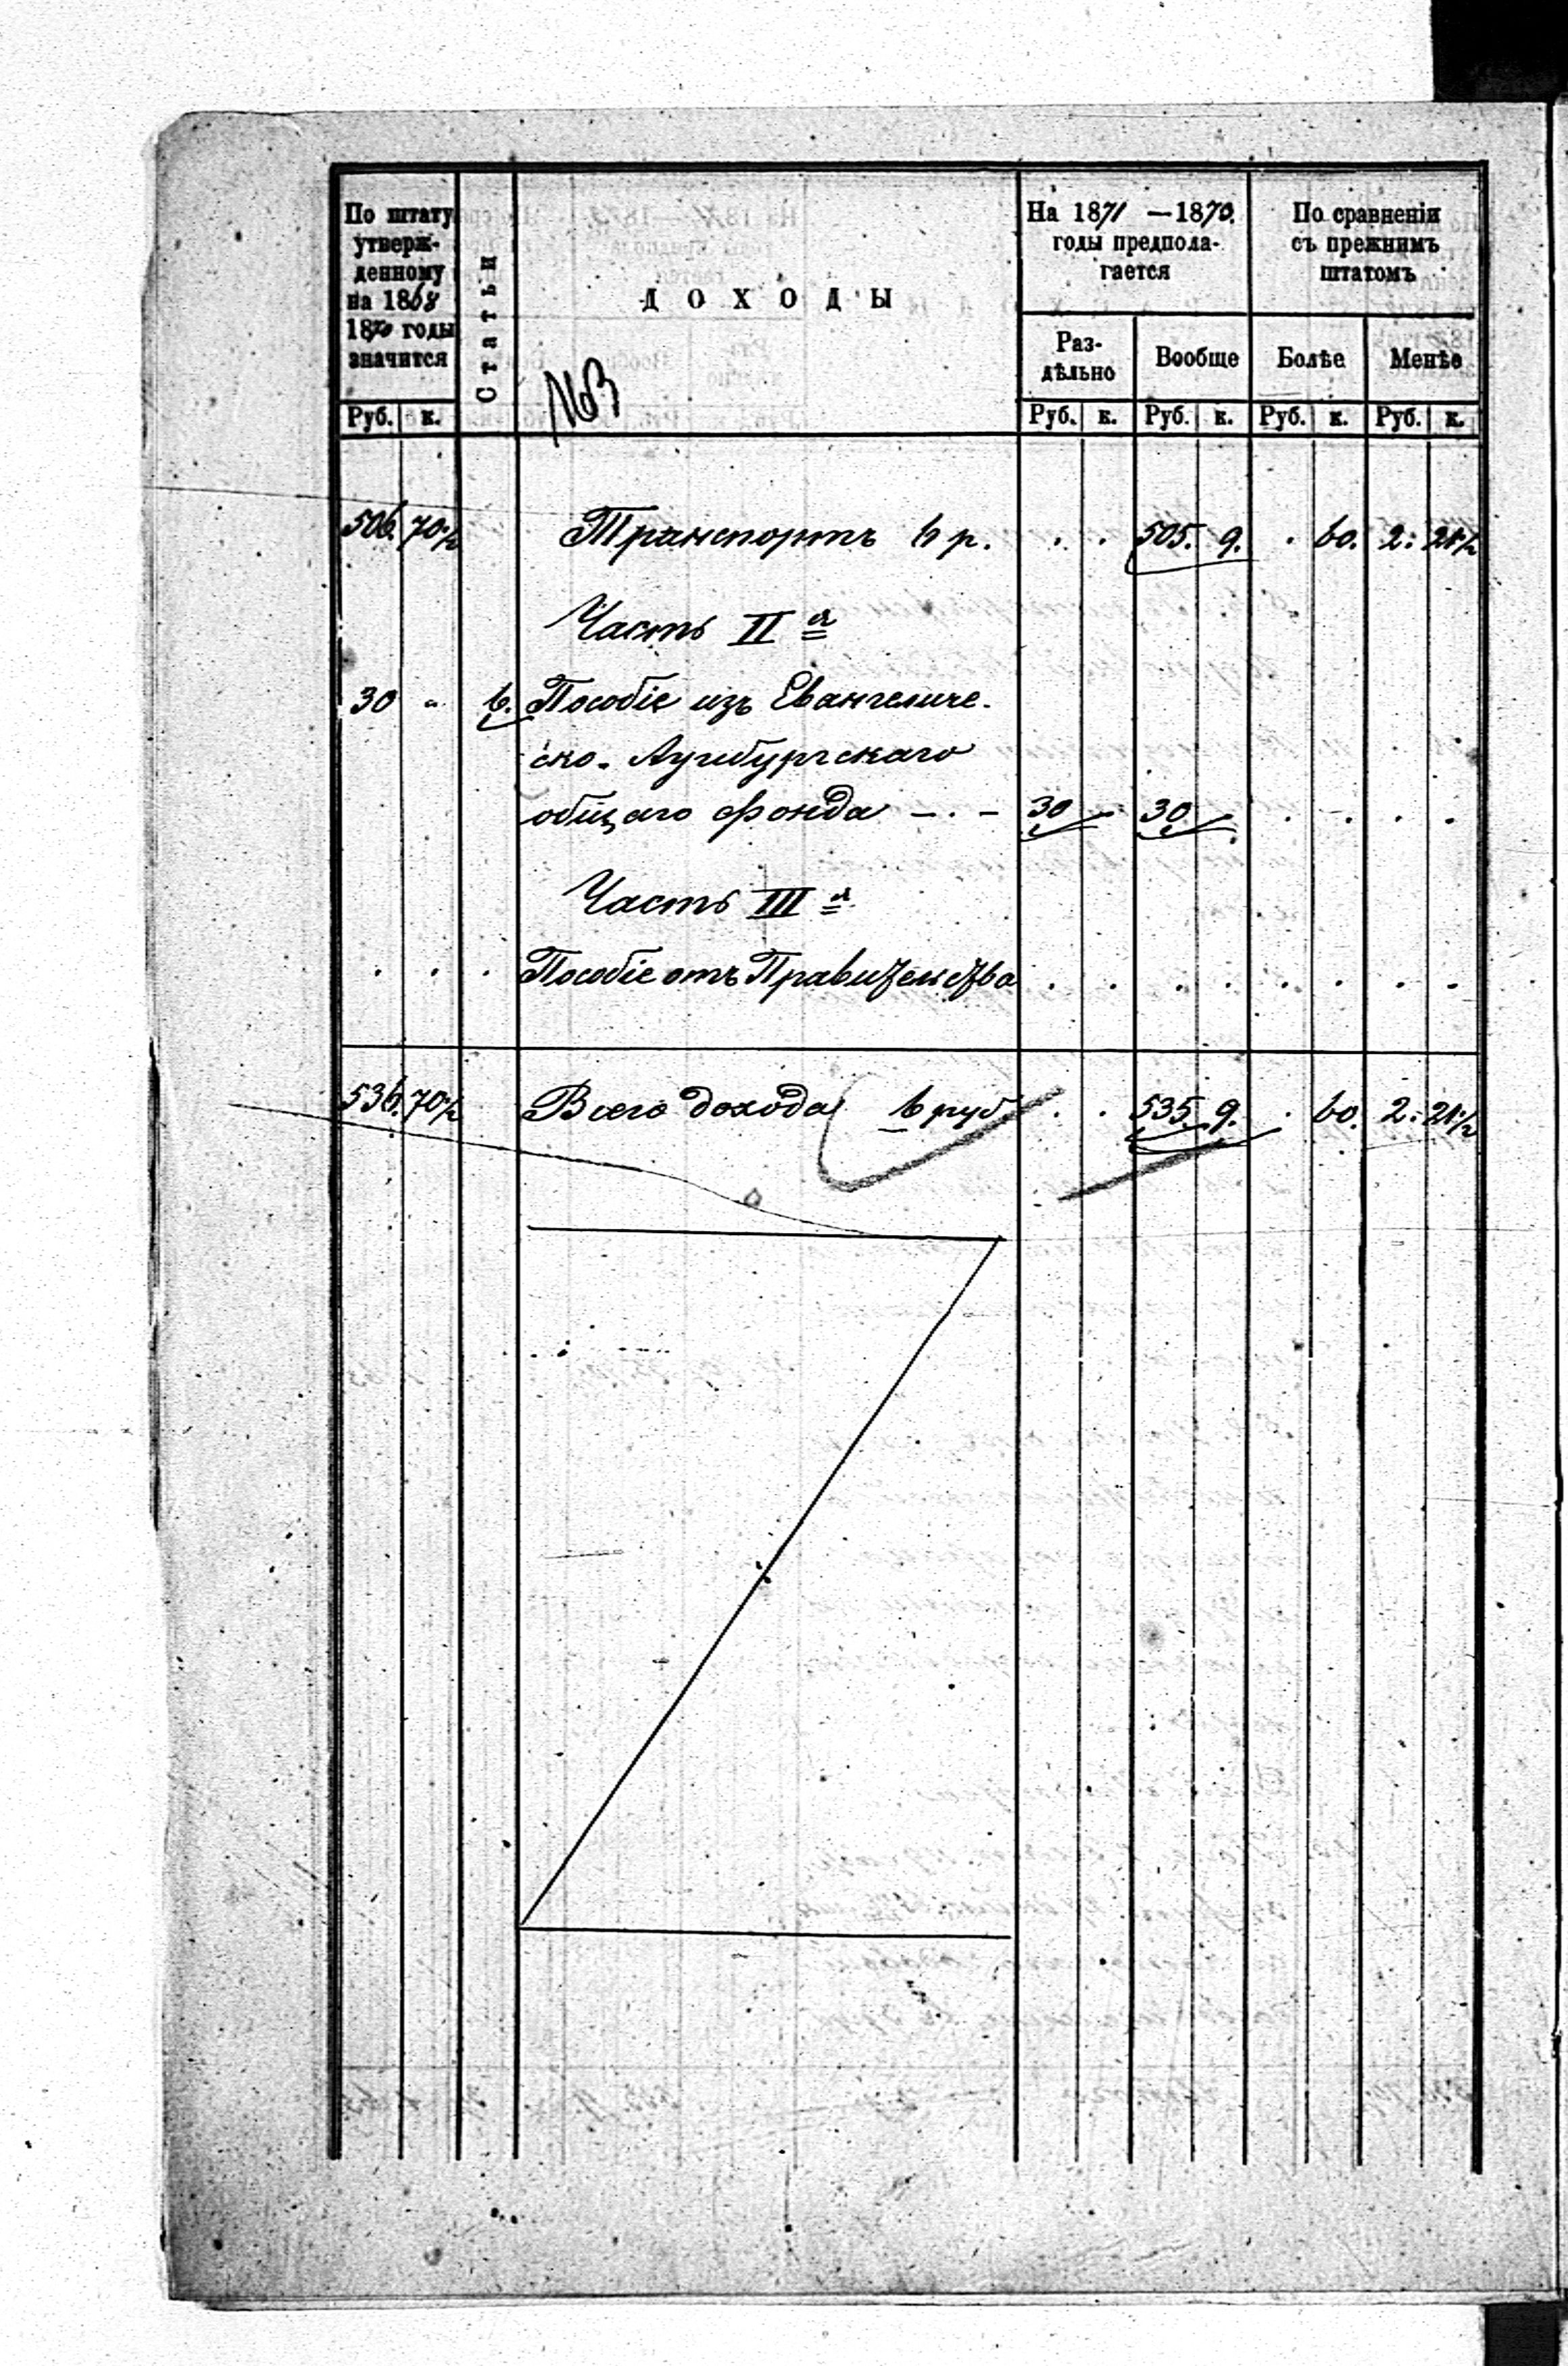 По штату утверж-
денному
на 1868
1870 годы
значится
Статьи
ДОХОДЫ
№3
На 1871 —1870.
годы предпола-
гается
По сравненіи
съ прежнимъ
штатомъ
Раз-
дѣльно
Вообще
Болѣе
Менѣе
Руб. к. Руб. к. Руб. к. Руб. к. Руб. к.
506. 70½ Транспортъ р. . . 505. 9. . 60. 2: 21½
Часть II я
30 " 6. Пособіе изъ Евангеличе-
ско-Аугсбургскаго
общаго фонда — . — 30 30 . . . .
Часть III я
. . . Пособіе отъ Правительства . . . . . . . .
536. 70½ Всего дохода руб . . 535. 9. . 60. 2: 21½